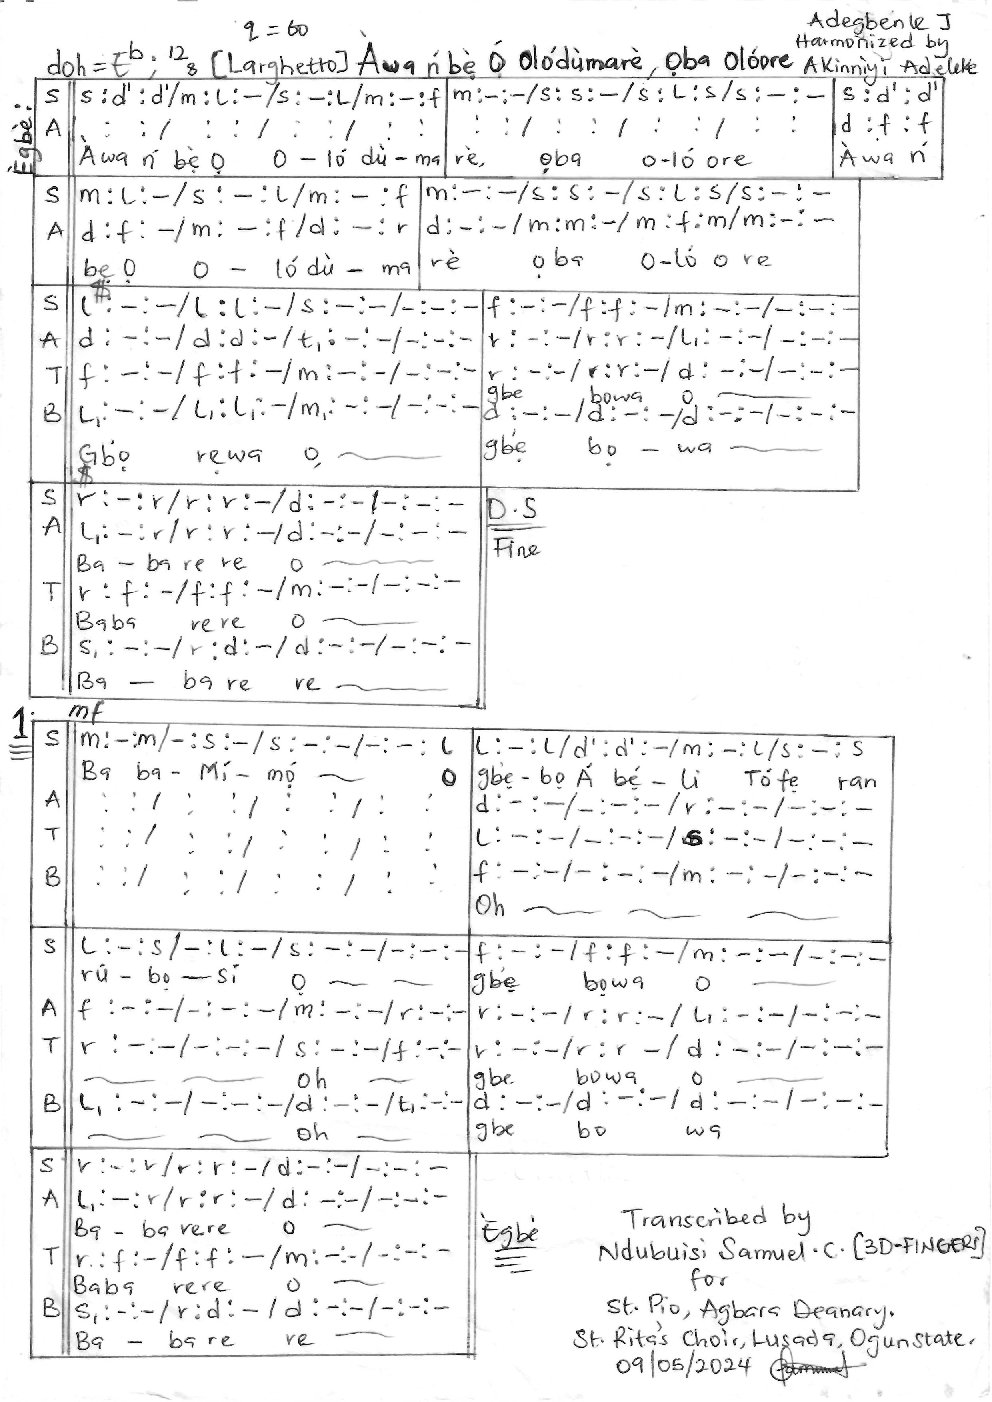 q = 60
Adegbenle J
Harmonized by
doh = Eb ; 12/8 [Larghetto] Àwa ń bẹ̀ Ọ́ Olódùmarè, Ọba Olóore Akinniyi Adeleke
Ègbè:
S s : d' : d' / m : l : - / s : - : l / m : - : f | m : - : - / s : s : - / s : l : s / s : - : - | s : d' : d'
A : : / : : / : : / : : | : : / : : / : : / : : | d : f : f
Àwa ń bẹ̀ Ọ O - ló dù - ma rè, ọba o-ló ore Àwa ń
S m : l : - / s : - : l / m : - : f | m : - : - / s : s : - / s : l : s / s : - : -
A d : f : - / m : - : f / d : - : r | d : - : - / m : m : - / m : f : m / m : - : -
bẹ Ọ O - ló dù - ma rè ọ ba O-ló o re
S l : - : - / l : l : - / s : - : - / - : - : - | f : - : - / f : f : - / m : - : - / - : - : -
A d : - : - / d : d : - / t₁ : - : - / - : - : - | r : - : - / r : r : - / l₁ : - : - / - : - : -
T f : - : - / f : f : - / m : - : - / - : - : - | r : - : - / r : r : - / d : - : - / - : - : -
gbe bowa o
B l₁ : - : - / l₁ : l₁ : - / m₁ : - : - / - : - : - | d : - : - / d : - : - / d : - : - / - : - : -
Gbọ rẹwa ọ gbẹ bọ - wa
S r : - : r / r : r : - / d : - : - / - : - : - D.S
A l₁ : - : r / r : r : - / d : - : - / - : - : - Fine
Ba - ba re re o
T r : f : - / f : f : - / m : - : - / - : - : -
Baba rere o
B s₁ : - : - / r : d : - / d : - : - / - : - : -
Ba - ba re re
1. mf
S m : - : m / - : s : - / s : - : - / - : - : l | l : - : l / d' : d' : - / m : - : l / s : - : s
Ba ba - Mí - mọ́ O gbẹ - bọ Á bẹ́ - li Tófẹ ran
A : : / : : / : : / : : | d : - : - / - : - : - / r : - : - / - : - : -
T : : / : : / : : / : : | l : - : - / - : - : - / s : - : - / - : - : -
B : : / : : / : : / : : | f : - : - / - : - : - / m : - : - / - : - : -
Oh
S l : - : s / - : l : - / s : - : - / - : - : - | f : - : - / f : f : - / m : - : - / - : - : -
rú - bọ - sí ọ gbẹ bọwa o
A f : - : - / - : - : - / m : - : - / r : - : - | r : - : - / r : r : - / l₁ : - : - / - : - : -
T r : - : - / - : - : - / s : - : - / f : - : - | r : - : - / r : r - / d : - : - / - : - : -
oh gbe bowa o
B l₁ : - : - / - : - : - / d : - : - / t₁ : - : - | d : - : - / d : - : - / d : - : - / - : - : -
oh gbe bo wa
S r : - : r / r : r : - / d : - : - / - : - : -
A l₁ : - : r / r : r : - / d : - : - / - : - : -
Ba - ba rere o
Ègbè
T r : f : - / f : f : - / m : - : - / - : - : -
Baba rere o
B s₁ : - : - / r : d : - / d : - : - / - : - : -
Ba - ba re re
Transcribed by
Ndubuisi Samuel.C. [3D-FINGERS]
for
St. Pio, Agbara Deanary.
St. Rita's Choir, Lusada, Ogun state.
09/05/2024